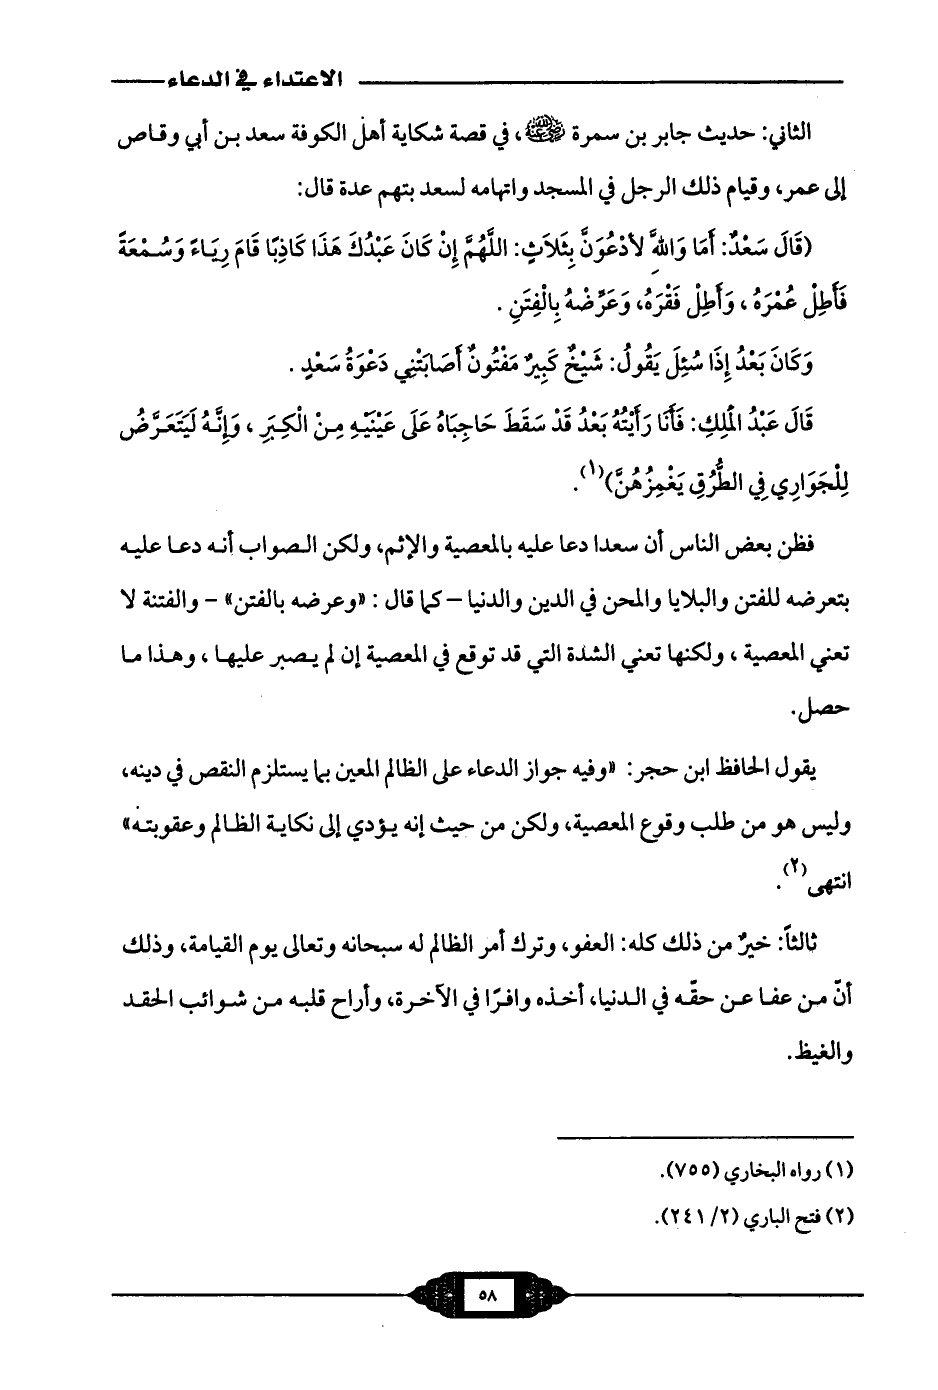 الاعتداء في الدعاء
الثاني: حديث جابر بن سمرة ﵁، في قصة شكاية أهل الكوفة سعد بن أبي وقاص
إلى عمر، وقيام ذلك الرجل في المسجد واتهامه لسعد بتهم عدة قال:
(قَالَ سَعْدٌ: أَمَا وَاللهِ لأَدْعُوَنَّ بِثَلاَثٍ: اللَّهُمَّ إِنْ كَانَ عَبْدُكَ هَذَا كَاذِبًا قَامَ رِيَاءً وَسُمْعَةً
فَأَطِلْ عُمْرَهُ ، وَأَطِلْ فَقْرَهُ، وَعَرِّضْهُ بِالْفِتَنِ .
وَكَانَ بَعْدُ إِذَا سُئِلَ يَقُولُ: شَيْخٌ كَبِيرٌ مَفْتُونٌ أَصَابَتْنِي دَعْوَةُ سَعْدٍ .
قَالَ عَبْدُ الْمَلِكِ: فَأَنَا رَأَيْتُهُ بَعْدُ قَدْ سَقَطَ حَاجِبَاهُ عَلَى عَيْنَيْهِ مِنْ الْكِبَرِ ، وَإِنَّهُ لَيَتَعَرَّضُ
لِلْجَوَارِي فِي الطُّرُقِ يَغْمِزُهُنَّ)(١).
فظن بعض الناس أن سعدا دعا عليه بالمعصية والإثم، ولكن الصواب أنه دعا عليه
بتعرضه للفتن والبلايا والمحن في الدين والدنيا – كما قال : «وعرضه بالفتن» – والفتنة لا
تعني المعصية ، ولكنها تعني الشدة التي قد توقع في المعصية إن لم يصبر عليها ، وهذا ما
حصل.
يقول الحافظ ابن حجر: «وفيه جواز الدعاء على الظالم المعين بما يستلزم النقص في دينه،
وليس هو من طلب وقوع المعصية، ولكن من حيث إنه يؤدي إلى نكاية الظالم وعقوبته»
انتهى(٢).
ثالثاً: خيرٌ من ذلك كله: العفو، وترك أمر الظالم له سبحانه وتعالى يوم القيامة، وذلك
أنّ من عفا عن حقّه في الدنيا، أخذه وافرًا في الآخرة، وأراح قلبه من شوائب الحقد
والغيظ.
(١) رواه البخاري (٧٥٥).
(٢) فتح الباري (٢/ ٢٤١).
٥٨